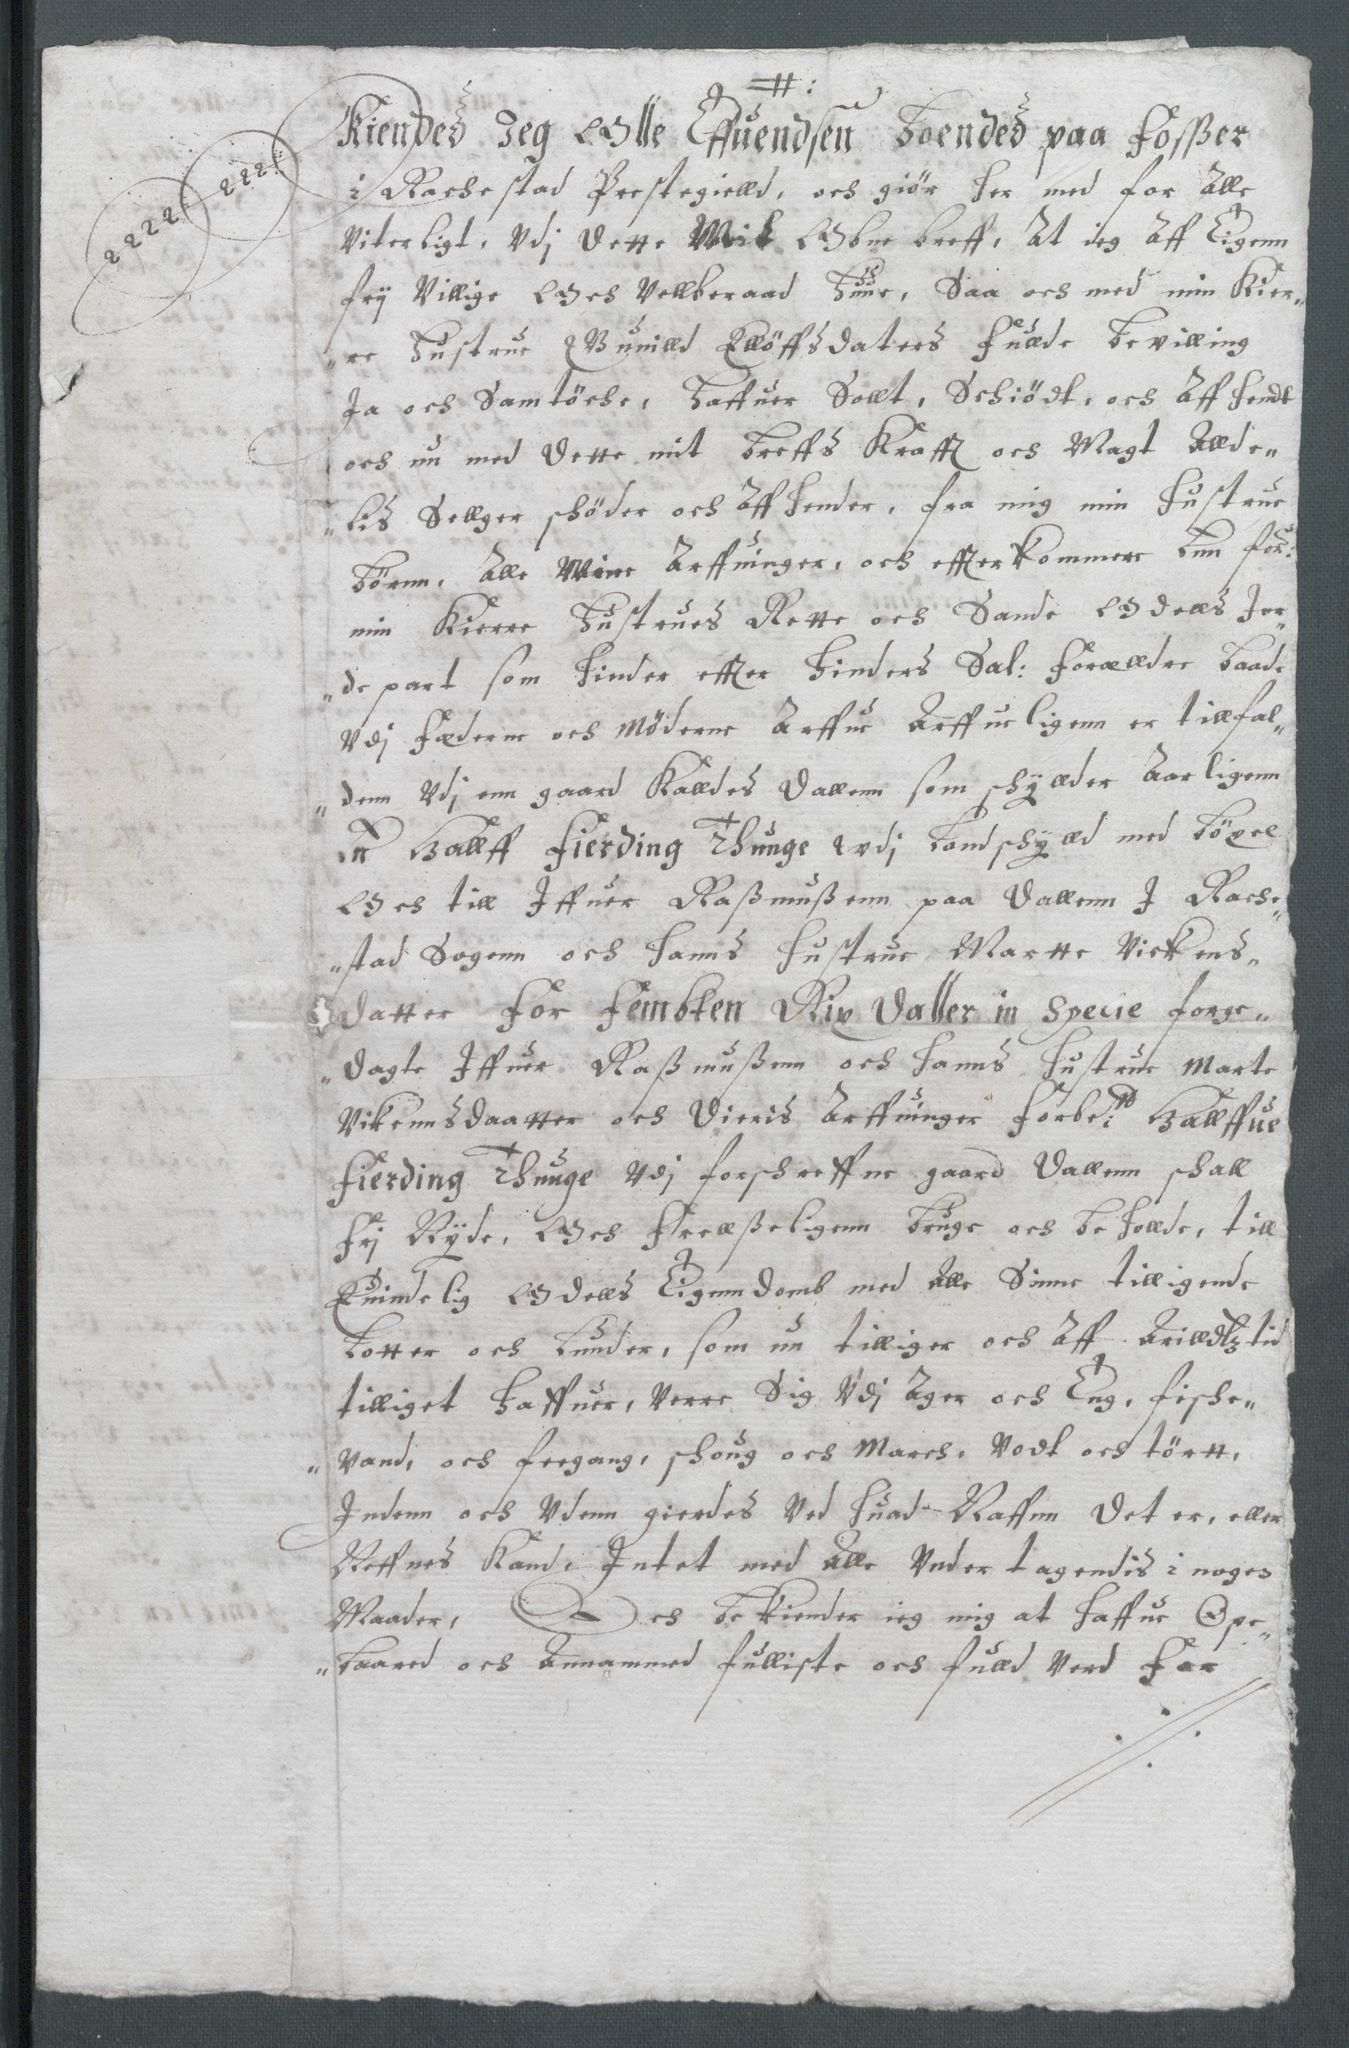 Kiendes Jeg Olle Effuendsen Boendes paa Fosser
i Rachestad Prestegielld, och giör her med for Alle
Viterligt, Vdj dette Mit Obne breff, At ieg Aff Eigenn
frij Villige Och Vellberaad Huue, Saa och med min Kier„
„re Hustrue Gunilld Ellöffsdaters Fullde bevilling
Ja och Samtöche, Haffuer Sollt, Schiödt, och Aff hendt
och nu med dette mit breffs Krafft och Magt Allde„
„lis Sellger schöder och Aff hender, fra mig min hustrue
börnn, Alle Mine Arffuinger, och effterkommere
min Kierre Hustrues Rette och Sande Odells Jor„
„depart som hinder effter Hinders Sal: Forælldre baade
Vdj Fæderne och Möderne Arffue Arffueligenn er tillfal„
„denn Vdj enn gaard Kalldes Dallenn som schyllder Aarligenn
En Hallff Fierding Thunge vdj Landschylld med böxel
Och till Jffuer Rassmussenn paa Dallenn J Rache„
„stad Sogenn och hanns hustrue Martte Vickens„
datter For Fembten Rix Daller in Specie forge„
„dagte Jffuer Rassmussenn och hanns hustrue Marte
Vikennsdaatter och dieris Arffuinger Forbe:te Hallffue
Fierding Thunge Vdj forschreffne gaard Dallenn schall
Frj Nyde, Och Frellsseligenn bruge och be hollde, till
Euindelig Odells Eigenndomb med Alle Sinne tilligende
Lotter och Lunder, som nu tilliger och Aff Arilldtz tid
tilliget haffuer, Verre Sig Vdj Ager och Eng, fische„
„vand, och feegang, schoug och March, Vodt och törtt,
Indenn och Vdenn gierdes Ved huad Naffnn det er, eller
Neffnes Kand, Intet med Alle Vndertagendis i noger
Maader, Och bekiender ieg mig at haffue Ope„
„baared och Annammed fulliste och fulld Verd For